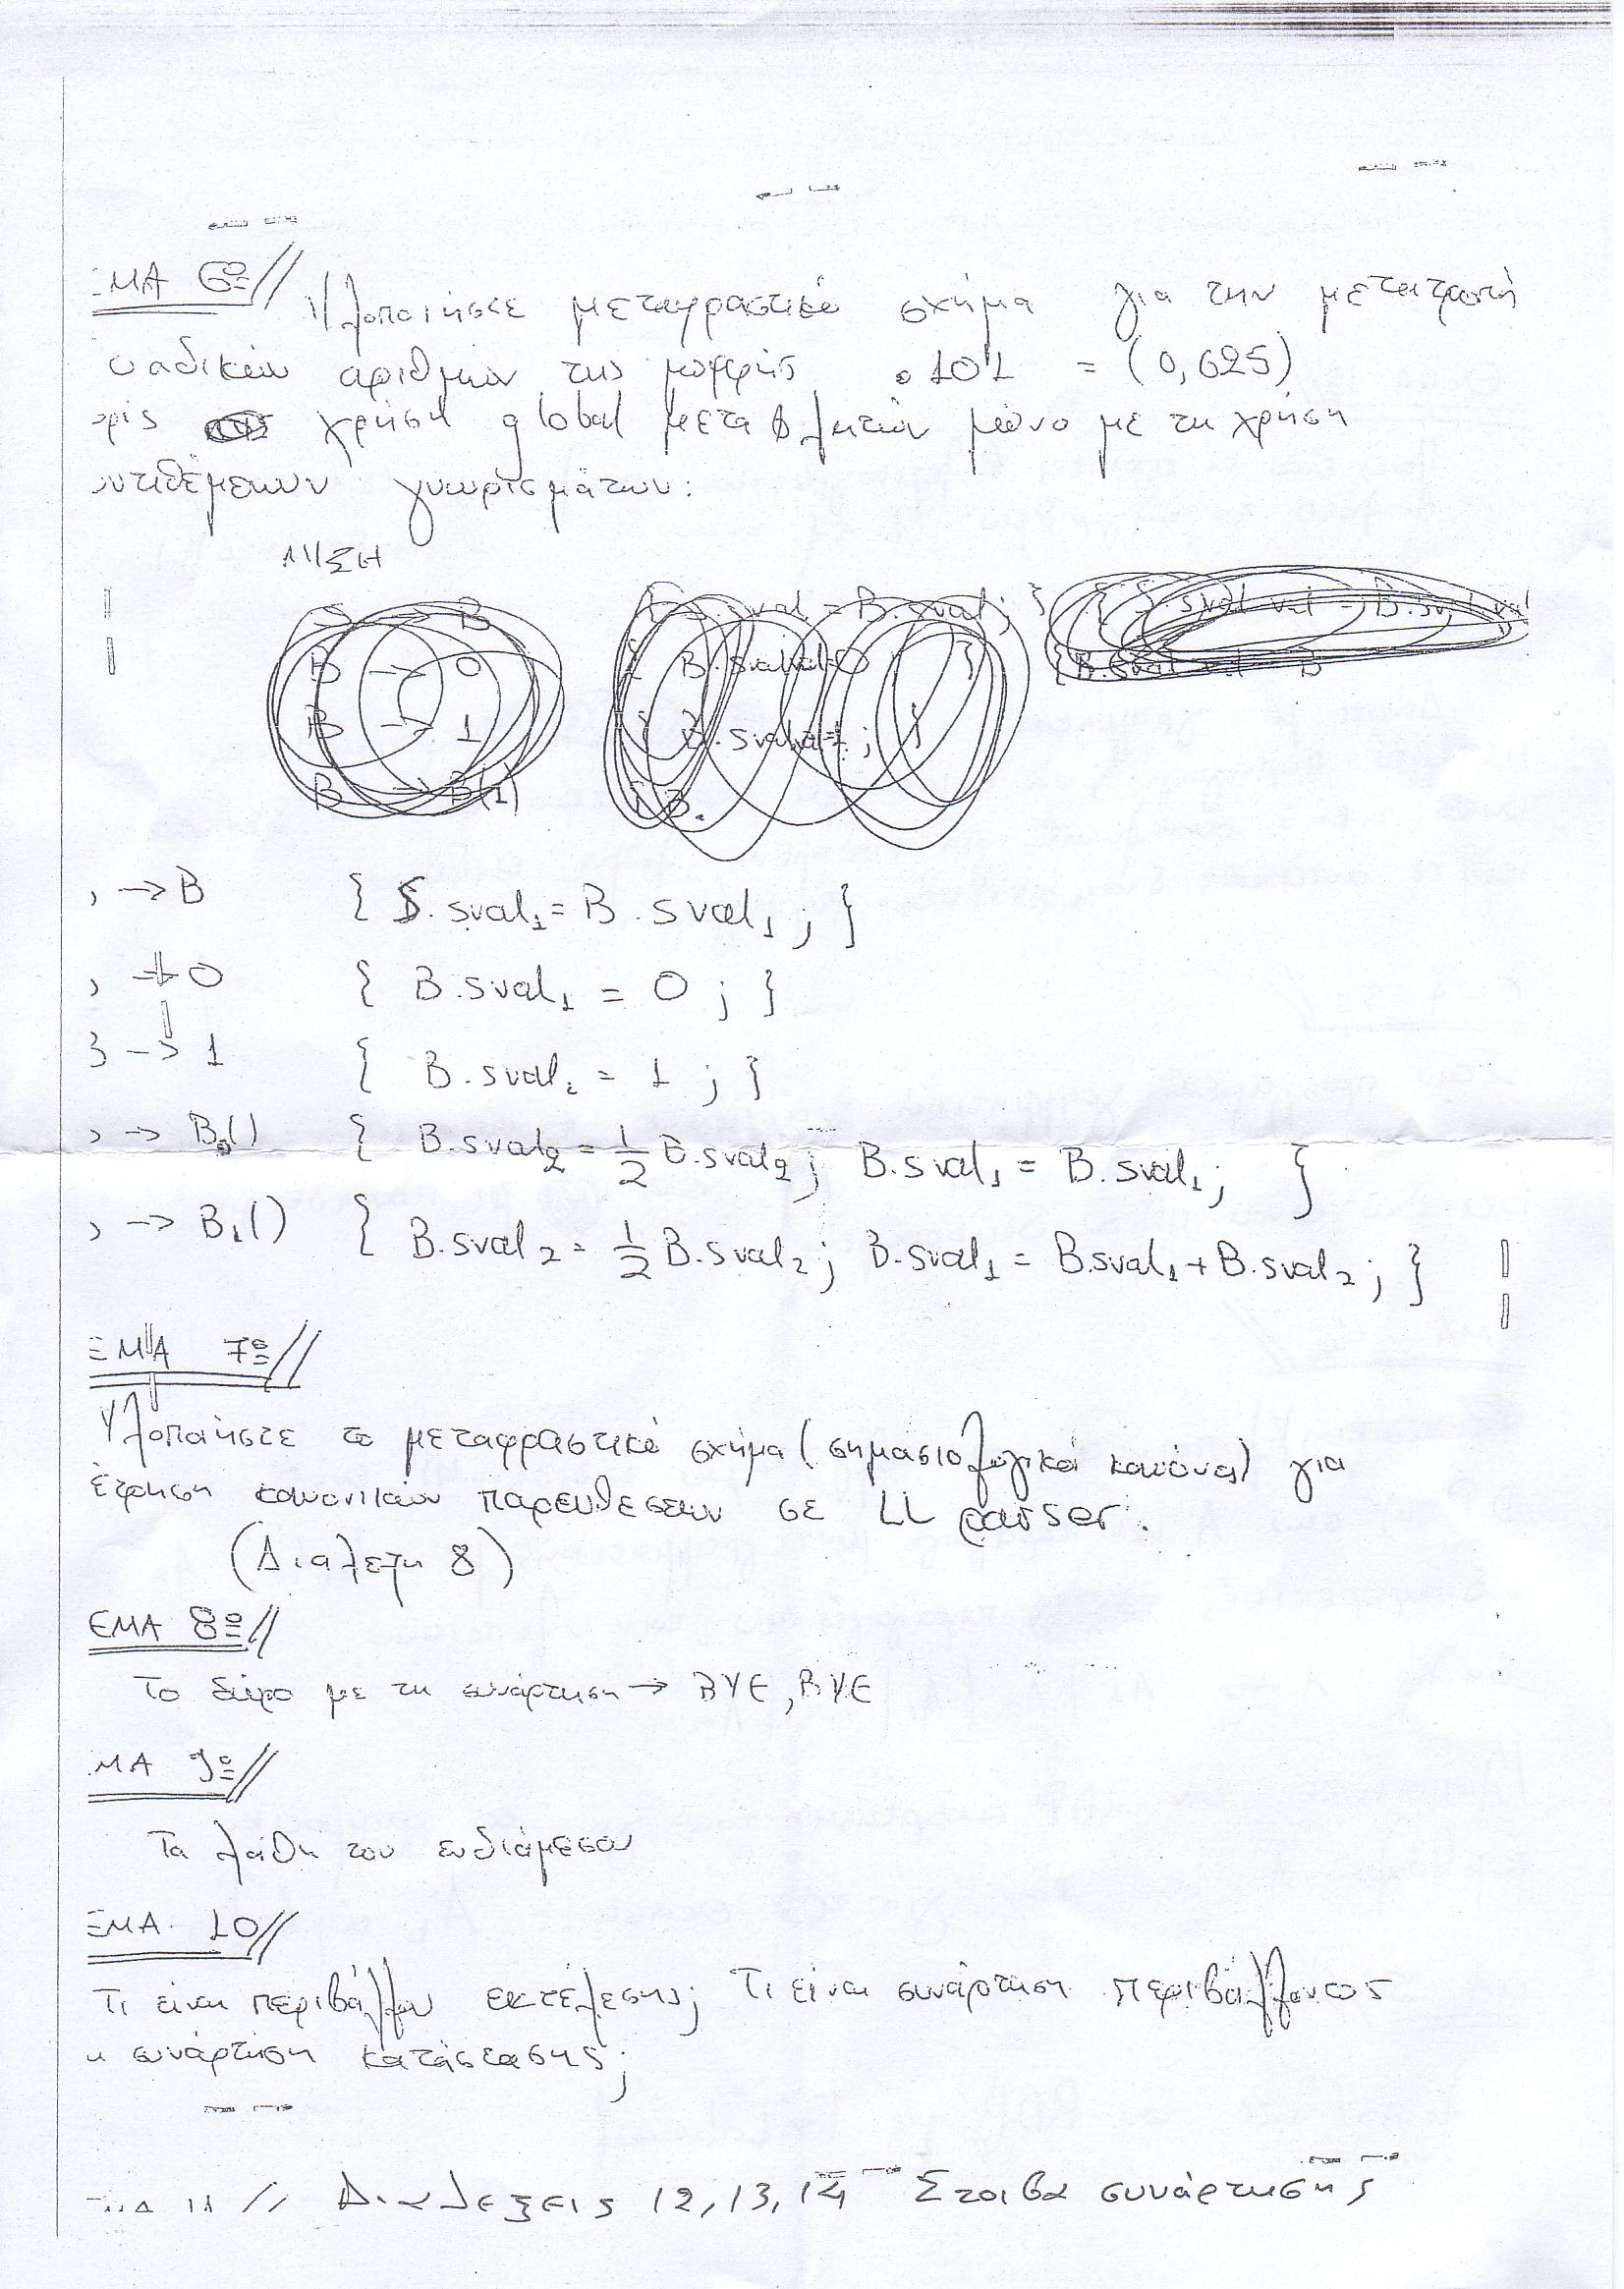 ΜΑ 6º//
Υλοποιήστε μεταφραστικό σχήμα για την μετατροπή
υαδικών αριθμών της μορφής .101 = (0,625)
ωρίς χρήση global μεταβλητών μόνο με τη χρήση
υντιθέμενων γνωρισμάτων:
ΛΥΣΗ
S → B { S.sval = B.sval; }
B → 0 { B.sval=0 }
B → 1 { B.sval=1; }
B → B(1) { B.
→ B { S.sval₁ = B.sval₁ ; }
→ 0 { B.sval₁ = 0 ; }
B → 1 { B.sval₁ = 1 ; }
→ B₀() { B.sval₂ = 1/2 B.sval₂; B.sval₁ = B.sval₁; }
→ B₁() { B.sval₂ = 1/2 B.sval₂; B.sval₁ = B.sval₁ + B.sval₂; }
ΕΜΑ 7º//
Υλοποιήστε το μεταφραστικό σχήμα (σημασιολογικοί κανόνες) για
έτρηση κανονικών παρενθέσεων σε LL parser.
(Διάλεξη 8)
ΕΜΑ 8º//
Το δώρο με τη συνάρτηση → BYE, BYE
ΜΑ 9º//
Τα λάθη του ενδιάμεσου
ΕΜΑ 10//
Τι είναι περιβάλλον εκτέλεσης; Τι είναι συνάρτηση περιβάλλοντος
ι συνάρτηση κατάστασης;
ΜΑ 11 // Διαλέξεις 12,13,14 Στοίβα συνάρτησης